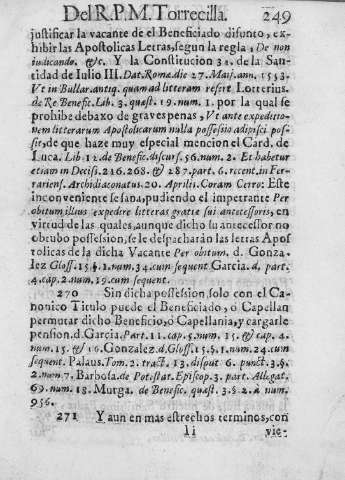 Del R.P.M. Torrecilla. 249
justificar la vacante de el Beneficiado difunto, ex-
hibir las Apostolicas Letras, segun la regla, De non
iudicando. &c. Y la Constitucion 32. de la San-
tidad de Iulio III. Dat. Romæ. die 27. Maij. ann. 1553.
Vt in Bullar. antiq. quam ad litteram refert Lotterius.
de Re Benefic. Lib. 3. quæst. 19. num. 1. por la qual se
prohibe debaxo de graves penas, Vt ante expeditio-
nem litterarum Apostolicarum nulla possessio adipisci pos-
sit, de que haze muy especial mencion el Card. de
Luca. Lib. 12. de Benefic. discurs. 56. num. 2. Et habetur
etiam in Decisi. 216. 268. & 287. part. 6. recent. in Fer-
rariens. Archidiaconatus. 20. Aprilis. Coram Cerro: Este
inconveniente se sana, pudiendo el impetrante Per
obitum illius expedire litteras gratiæ sui antecessoris, en
virtud de las quales, aunque dicho su antecessor no
obtubo possession, se le despacharàn las letras Apos
tolicas de la dicha Vacante Per obitum. d. Gonza-
lez Gloss. 15. §. 1. num. 34. cum sequent Garcia. d. part.
4. cap. 2. num. 19. cum sequent.
270 Sin dicha possession, solo con el Ca-
nonico Titulo puede el Beneficiado, ò Capellan
permutar dicho Beneficio, ò Capellania, y cargarle
pension. d. Garcia. Part. 11. cap. 5. num. 15. & cap. 4.
num. 15. & 16. Gonzalez. d. Gloss. 15. §. 1. num. 24. cum
sequent. Palaus. Tom. 2. tract. 13. disput 6. punct. 3. §.
2. num. 7. Barbosa. de Potestat. Episcop. 3. part. Allegat.
69. num. 18. Murga. de Benefic. quæst. 3. § 2. à num.
956.
271 Y aun en mas estrechos terminos, con
Ii vie-